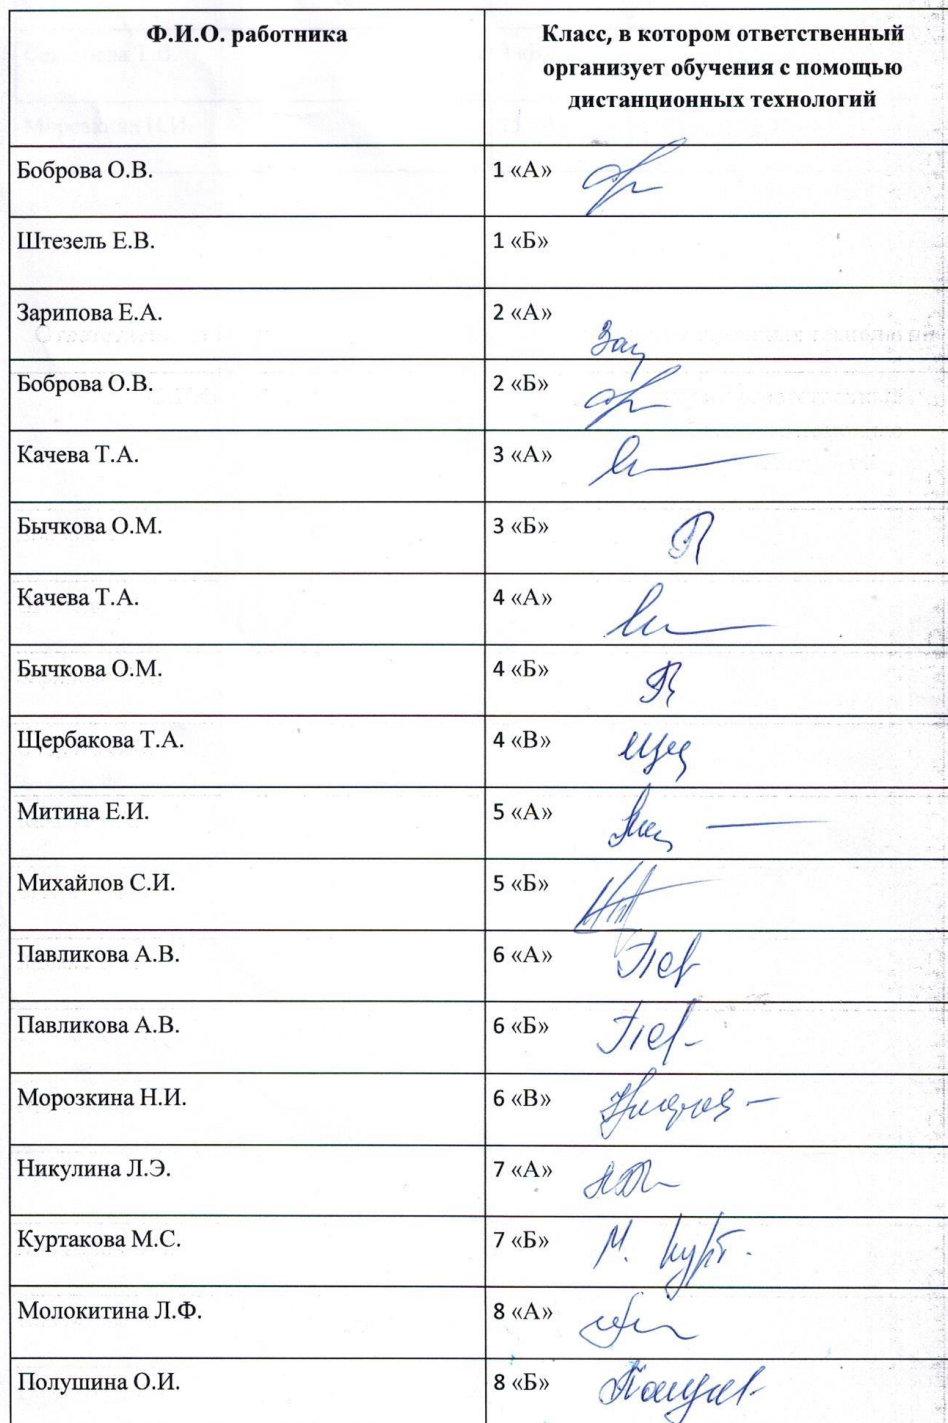 Ф.И.О. работника
Класс, в котором ответственный
организует обучения с помощью
дистанционных технологий
Боброва О.В.
1 «А»
Штезель Е.В.
1 «Б»
Зарипова Е.А.
2 «А»
Боброва О.В.
2 «Б»
Качева Т.А.
3 «А»
Бычкова О.М.
3 «Б»
Качева Т.А.
4 «А»
Бычкова О.М.
4 «Б»
Щербакова Т.А.
4 «В»
Митина Е.И.
5 «А»
Михайлов С.И.
5 «Б»
Павликова А.В.
6 «А»
Павликова А.В.
6 «Б»
Морозкина Н.И.
6 «В»
Никулина Л.Э.
7 «А»
Куртакова М.С.
7 «Б» М. Курт.
Молокитина Л.Ф.
8 «А»
Полушина О.И.
8 «Б»